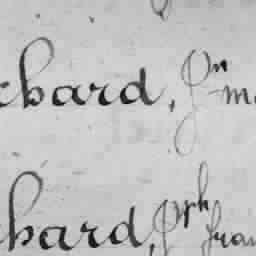 chard, Jn m
hard, Jph fran